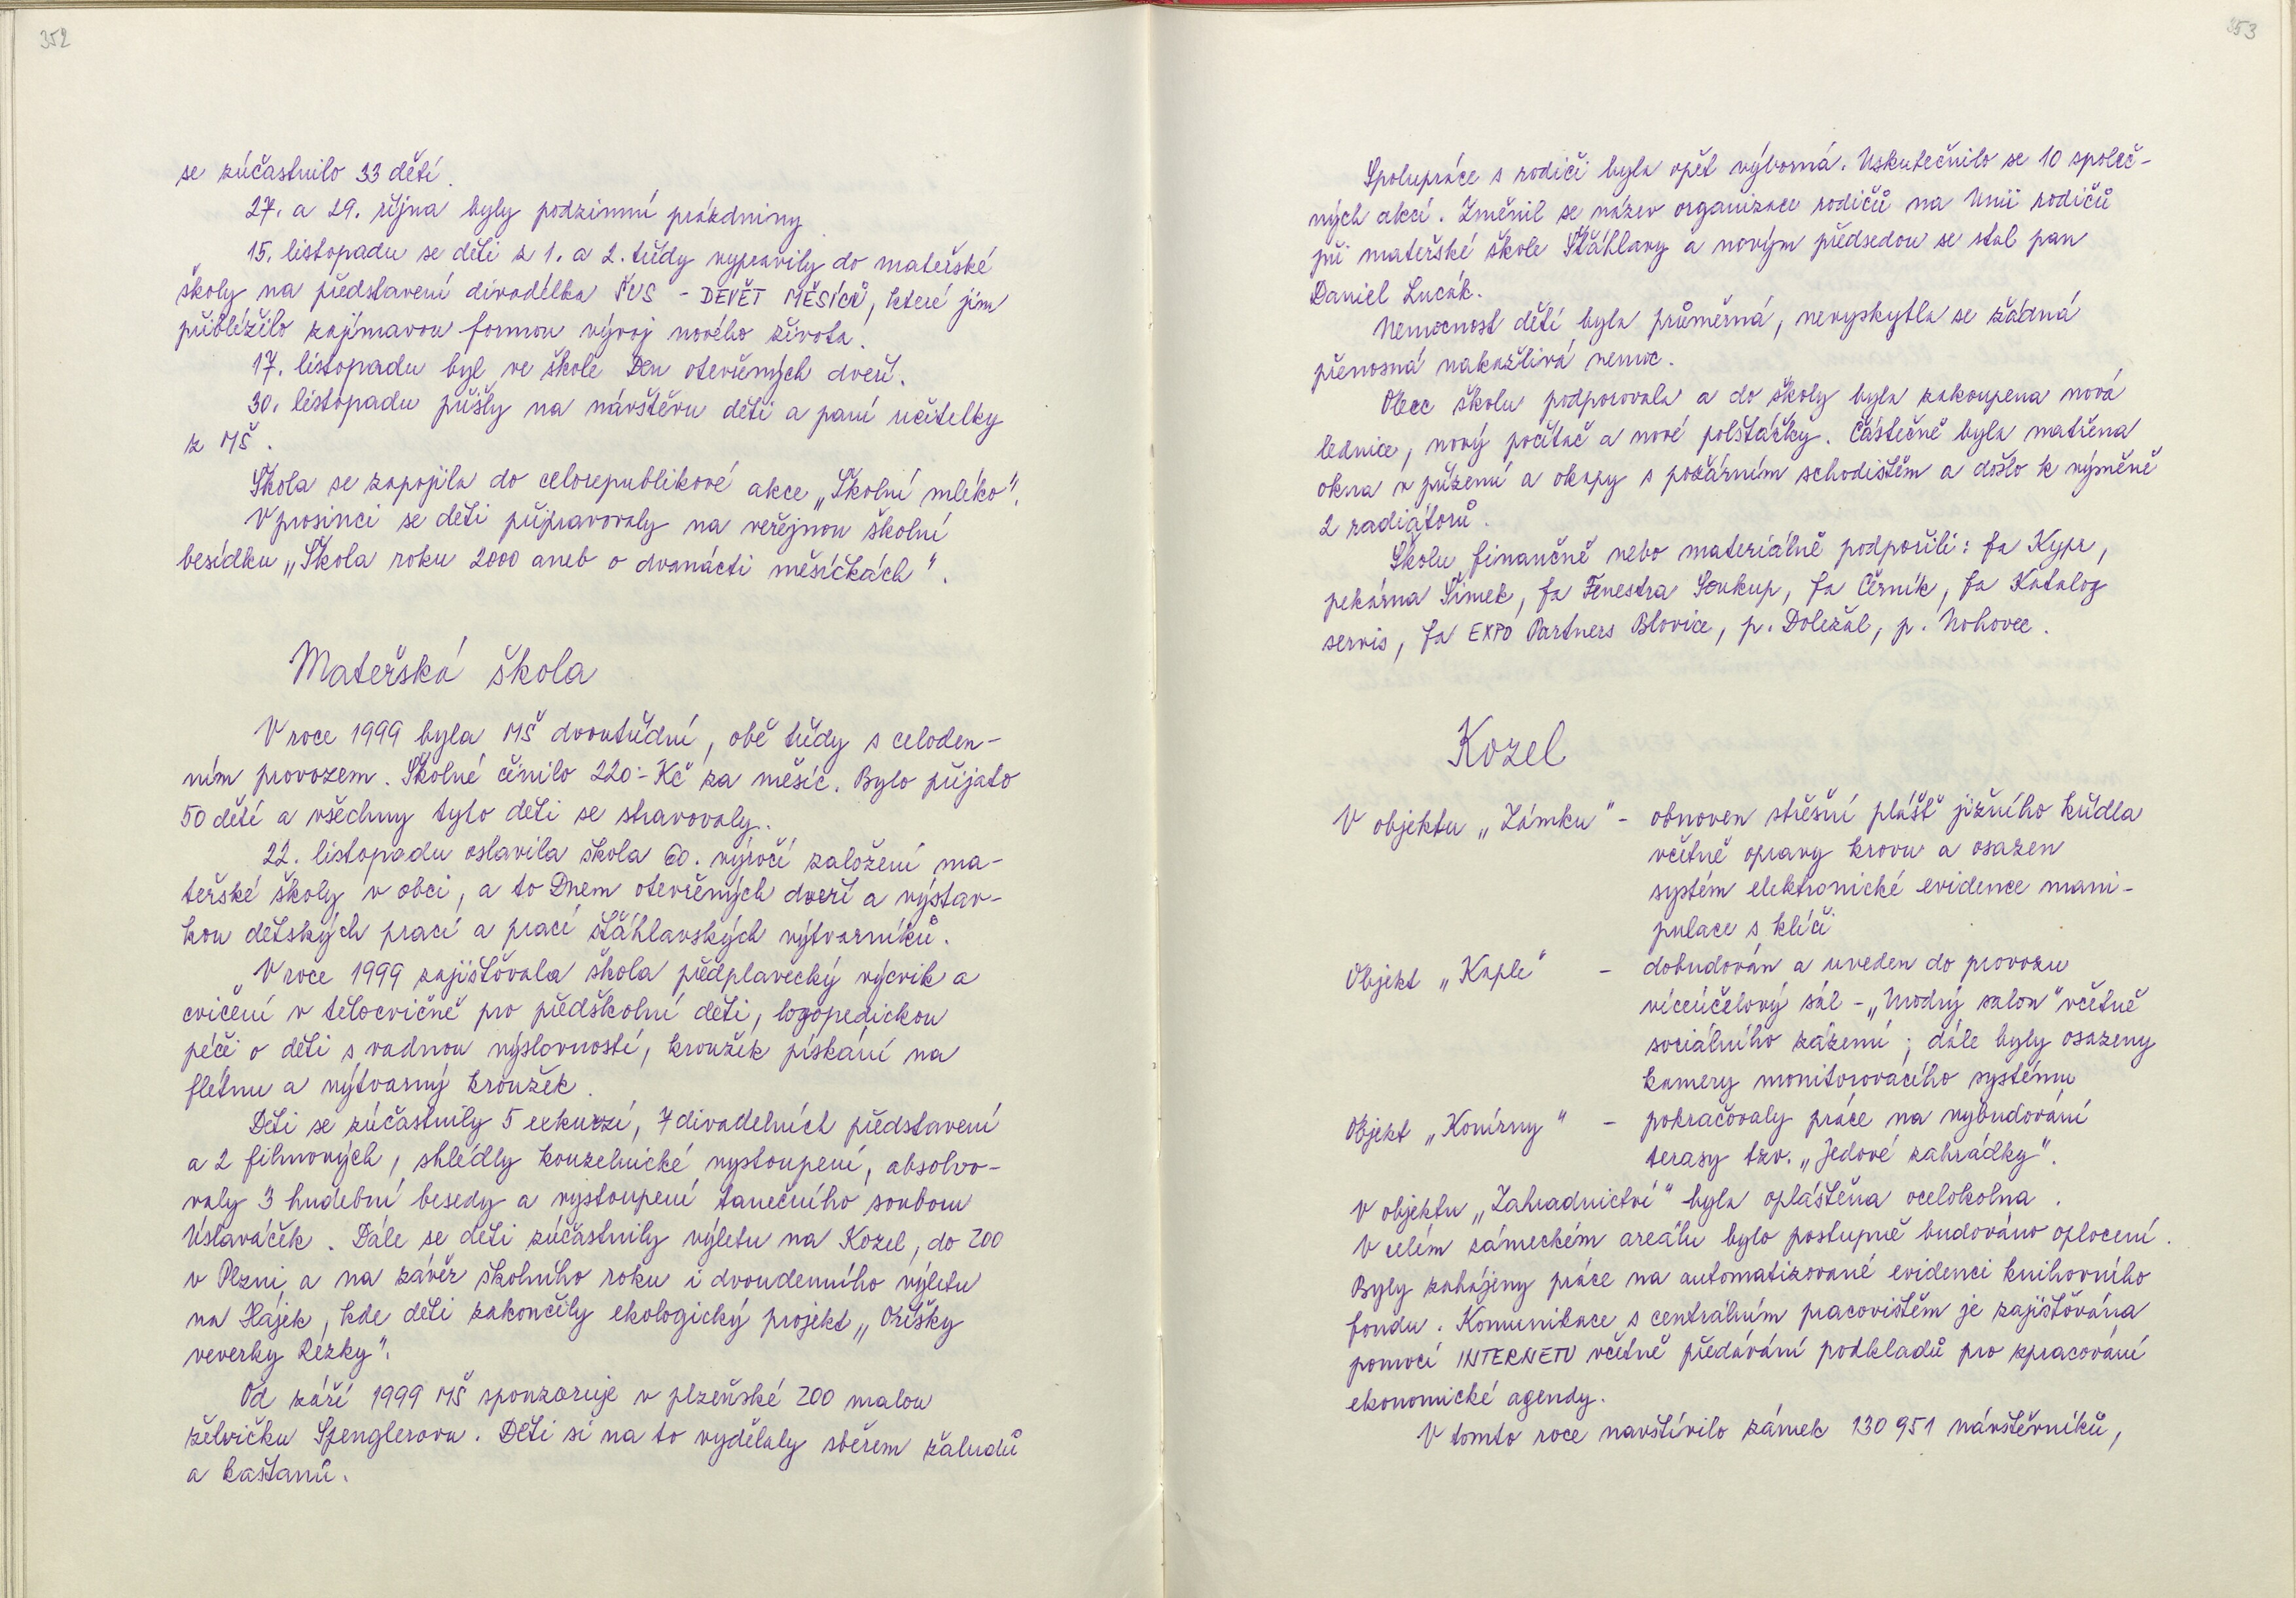 352
se zúčastnilo 33 dětí.
27. a 29. října byly podzimní prázdniny.
15. listopadu se děti z 1. a 2. třídy vypravily do mateřské
školy na představení divadélka ŤUS - DEVĚT MĚSÍCŮ, které jim
přiblížilo zajímavou formou vývoj nového života.
17. listopadu byl ve škole Den otevřených dveří.
30. listopadu přišly na návštěvu děti a paní učitelky
z MŠ.
Škola se zapojila do celorepublikové akce „Školní mléko“.
V prosinci se děti připravovaly na veřejnou školní
besídku „Škola roku 2000 aneb o dvanácti měsíčkách“.
Mateřská škola
V roce 1999 byla MŠ dvoutřídní, obě třídy s celoden-
ním provozem. Školné činilo 220.- Kč za měsíc. Bylo přijato
50 dětí a všechny tyto děti se stravovaly.
22. listopadu oslavila škola 60. výročí založení ma-
teřské školy v obci, a to Dnem otevřených dveří a výstav-
kou dětských prací a prací šťáhlavských výtvarníků.
V roce 1999 zajišťovala škola předplavecký výcvik a
cvičení v tělocvičně pro předškolní děti, logopedickou
péči o děti s vadnou výslovností, kroužek pískání na
flétnu a výtvarný kroužek.
Děti se zúčastnily 5 exkurzí, 7 divadelních představení
a 2 filmových, shlédly kouzelnické vystoupení, absolvo-
valy 3 hudební besedy a vystoupení tanečního souboru
Úslaváček. Dále se děti zúčastnily výletu na Kozel, do ZOO
v Plzni a na závěr školního roku i dvoudenního výletu
na Hájek, kde děti zakončily ekologický projekt „Oříšky
veverky Rézky“.
Od září 1999 MŠ sponzoruje v plzeňské ZOO malou
želvičku Spenglerovu. Děti si na to vydělaly sběrem žaludů
a kaštanů.
353
Spolupráce s rodiči byla opět výborná. Uskutečnilo se 10 společ-
ných akcí. Změnil se název organizace rodičů na Unii rodičů
při mateřské škole Šťáhlavy a novým předsedou se stal pan
Daniel Lucák.
Nemocnost dětí byla průměrná, nevyskytla se žádná
přenosná nakažlivá nemoc.
Obec školu podporovala a do školy byla zakoupena nová
lednice, nový počítač a nové polštářky. Částečně byla natřena
okna v přízemí a okapy s požárním schodištěm a došlo k výměně
2 radiátorů.
Školu finančně nebo materiálně podpořili: fa Kypr,
pekárna Šimek, fa Fenestra Soukup, fa Černík, fa Katalog
servis, fa EXPO Partners Blovice, p. Doležal, p. Nohovec.
Kozel
V objektu „Zámku“ - obnoven střešní plášť jižního křídla
včetně opravy krovu a osazen
systém elektronické evidence mani-
pulace s klíči
Objekt „Kaple“ - dobudován a uveden do provozu
víceúčelový sál - „Modrý salon“ včetně
sociálního zázemí; dále byly osazeny
kamery monitorovacího systému
Objekt „Konírny“ - pokračovaly práce na vybudování
terasy tzv. „Jedové zahrádky“.
V objektu „Zahradnictví“ byla opláštěna ocelokolna.
V celém zámeckém areálu bylo postupně budováno oplocení.
Byly zahájeny práce na automatizované evidenci knihovního
fondu. Komunikace s centrálním pracovištěm je zajišťována
pomocí INTERNETU včetně předávání podkladů pro zpracování
ekonomické agendy.
V tomto roce navštívilo zámek 130 951 návštěvníků,